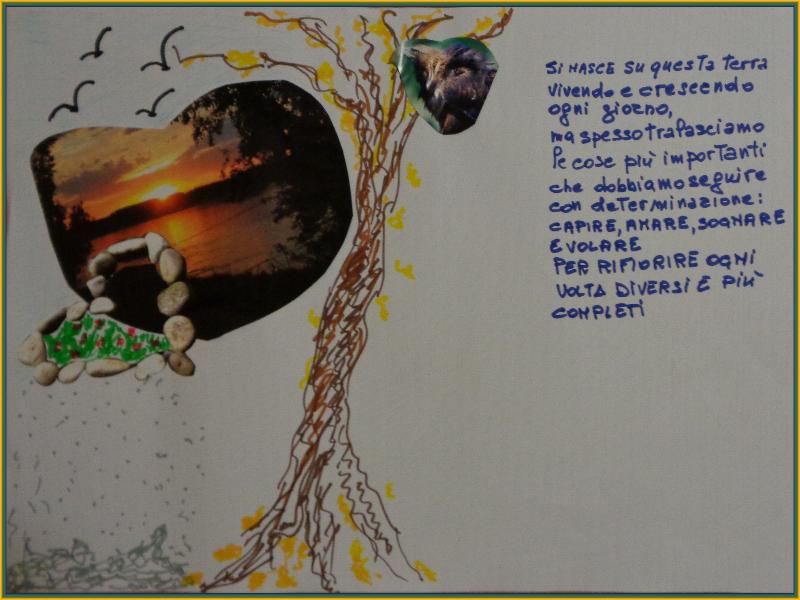 Si NASCE SU questa terra
vivendo e crescendo
ogni giorno,
ma spesso tralasciamo
le cose più importanti
che dobbiamo seguire
con determinazione:
CAPIRE, AMARE, SOGNARE
E VOLARE
PER RIFIORIRE OGNI
VOLTA DIVERSI E PIÙ
COMPLETI